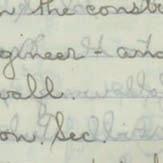 the constr
gineer - and
wall.
on. Sec.